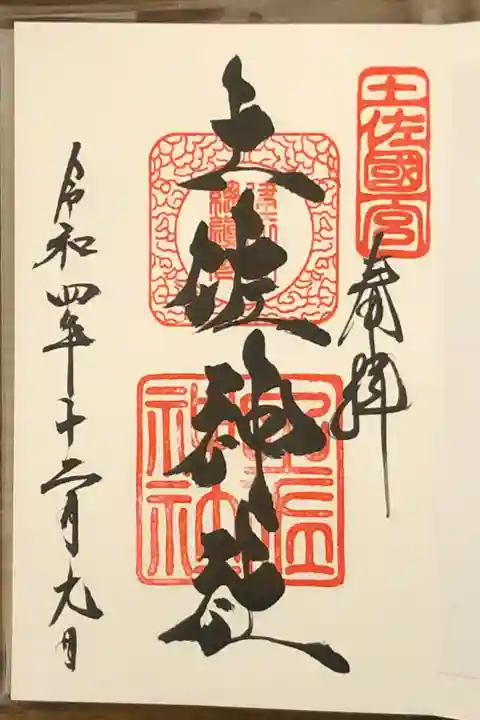 土佐國宮
奉拝
土佐神社
令和四年十二月九日